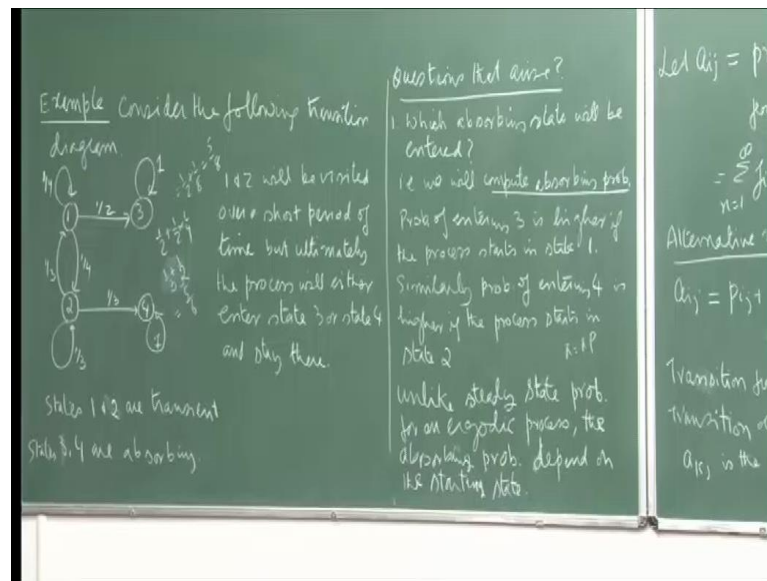 Example Consider the following transition
diagram.
1/4
1
1/2
3
1
1/3
1/4
2
1/3
4
1
1/3
1 & 2 will be visited
over a short period of
time but ultimately
the process will either
enter state 3 or state 4
and stay there.
States 1 & 2 are transient
States 3, 4 are absorbing
Questions that arise?
1. Which absorbing state will be
entered?
ie we will compute absorbing prob.
Prob of entering 3 is higher if
the process starts in state 1.
Similarly prob. of entering 4 is
higher if the process starts in
state 2
π = πP
unlike steady state prob.
for an ergodic process, the
absorbing prob. depend on
the starting state.
Let aij =
= ∞ Σ n=1
Alternative
aij = pij +
Transition
transition
is the